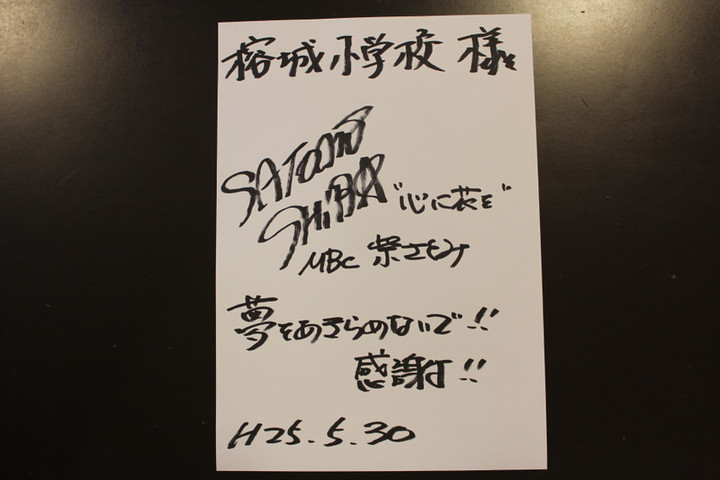 榕城小学校 様
SATOMI
SHIBA
"心に花を"
MBC 柴さとみ
夢をあきらめないで!!
感謝!!
H25.5.30